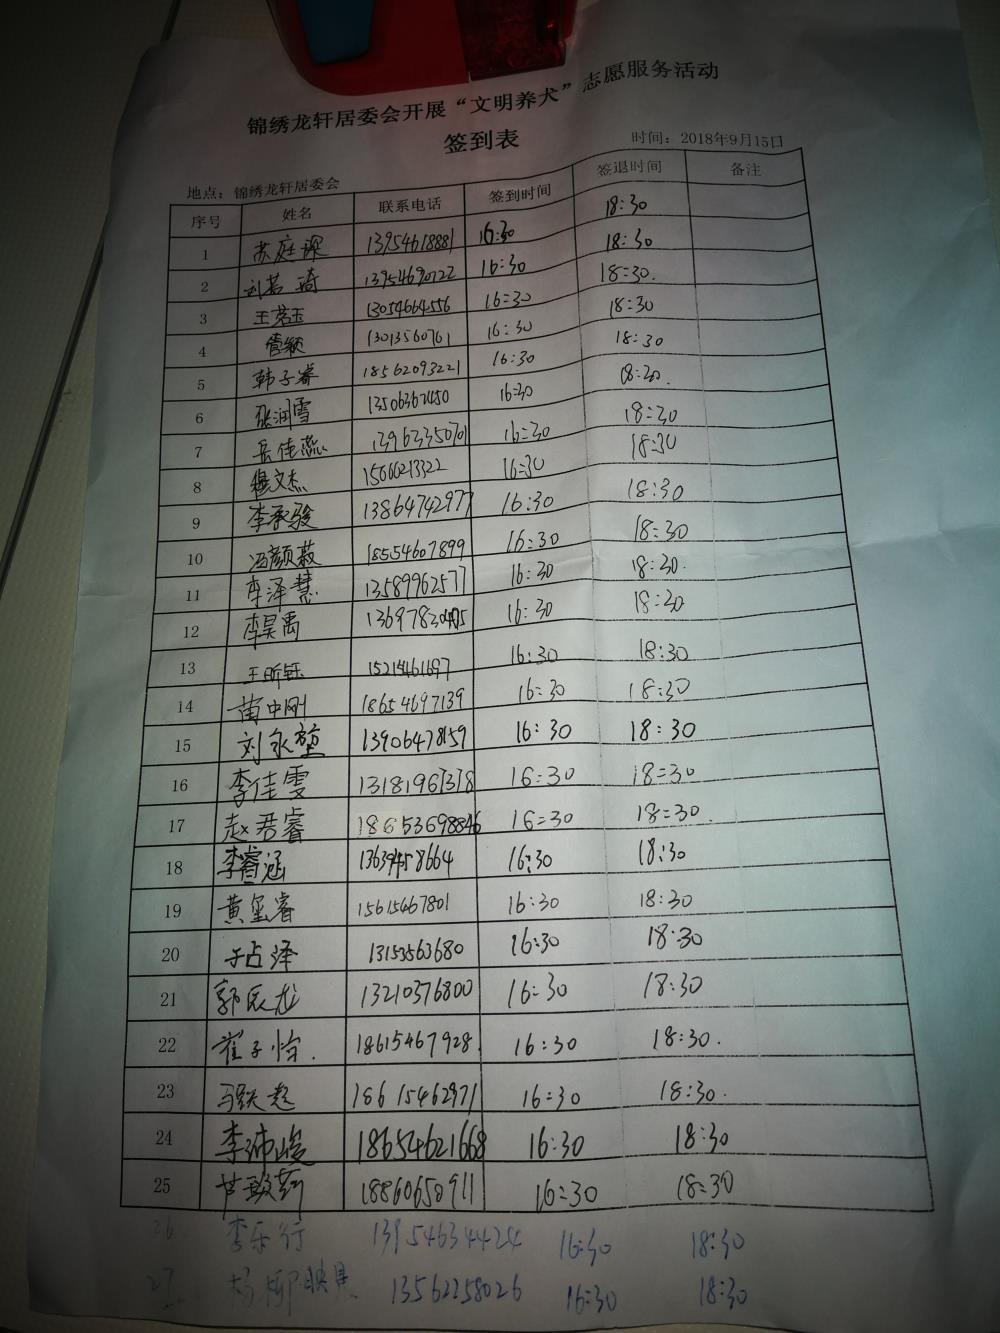 锦绣龙轩居委会开展“文明养犬”志愿服务活动
签到表
时间：2018年9月15日
地点：锦绣龙轩居委会
序号 姓名 联系电话 签到时间 签退时间 备注
1 苏庭 13954618881 16:30 18:30
2 刘若琦 13954690722 16:30 18:30
3 王茗玉 13054664556 16:30 18:30.
4 管颖 13013560761 16:30 18:30
5 韩子睿 18562093221 16:30 18:30
6 张润雪 13506367450 16:30 18:30.
7 岳佳燕 13963350701 16:30 18:30
8 穆文杰 15666213322 16:30 18:30
9 李承骏 13864742977 16:30 18:30
10 冯颜薇 18554607899 16:30 18:30
11 李泽慧 13589962577 16:30 18:30.
12 李昊禹 16:30 18:30
13 王昕钰 15214461697 16:30 18:30
14 苗中刚 18654697139 16:30 18:30
15 刘永 13906478159 16:30 18:30
16 李佳雯 13181967378 16:30 18:30
17 赵君睿 18653698846 16:30 18:30.
18 李睿涵 16:30 18:30
19 黄玺睿 15615467801 16:30 18:30
20 于占泽 13153563680 16:30 18:30
21 郭辰龙 13210376800 16:30 18:30
22 崔子怡. 18615467928. 16:30 18:30.
23 马 18615462971 16:30 18:30.
24 李沛峻 18654621668 16:30 18:30
25 18860650911 16:30 18:30
26 李乐行 13954634424 16:30 18:30
27 杨柳 13562258026 16:30 18:30